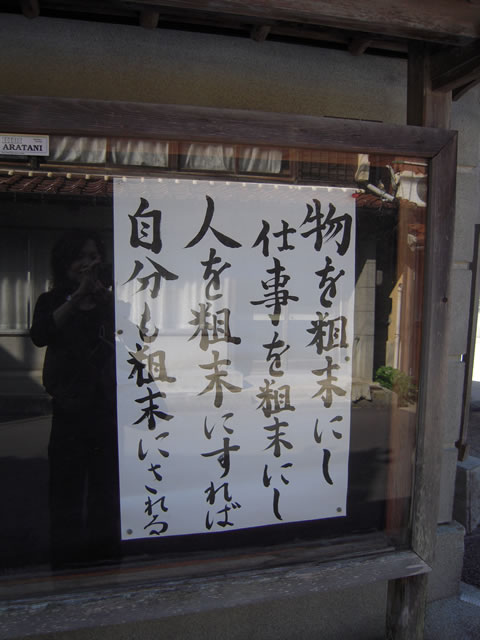 物を粗末にし
仕事を粗末にし
人を粗末にすれば
自分も粗末にされる
ARATANI